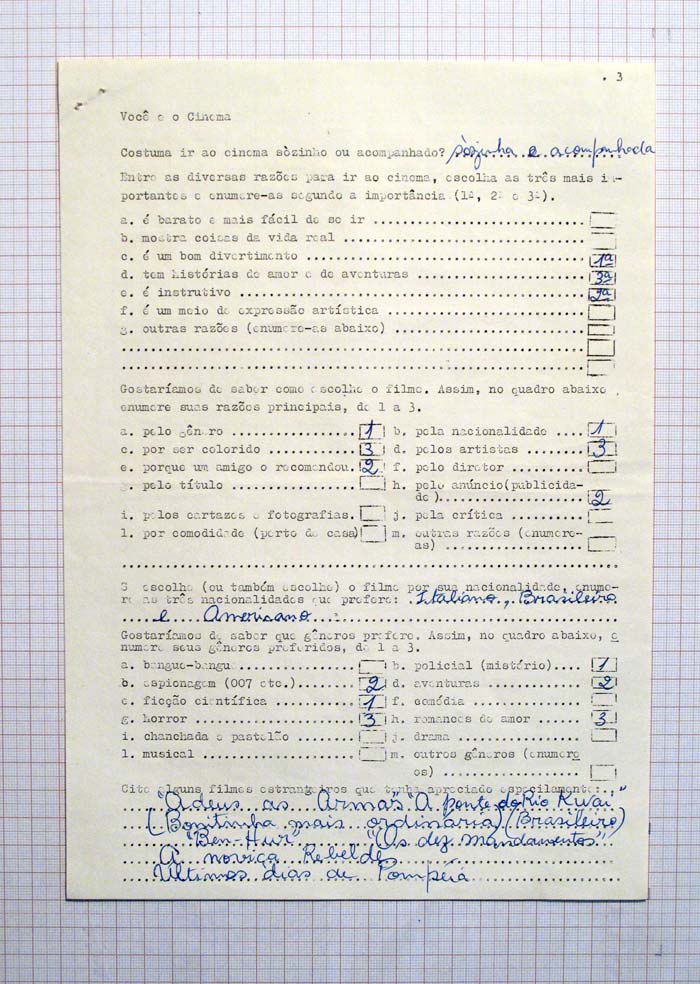 . 3
Você e o Cinema
Costuma ir ao cinema sòzinho ou acompanhado? sòzinha e acompanhada
Entre as diversas razões para ir ao cinema, escolha as três mais im-
portantes e enumere-as segundo a importância (1ª, 2ª e 3ª).
a. é barato e mais fácil de se ir
b. mostra coisas da vida real
c. é um bom divertimento 1ª
d. tem histórias de amor e de aventuras 3ª
e. é instrutivo 2ª
f. é um meio de expressão artística
g. outras razões (enumere-as abaixo)
Gostaríamos de saber como escolhe o filme. Assim, no quadro abaixo,
enumere suas razões principais, de 1 a 3.
a. pelo gênero 1 b. pela nacionalidade 1
c. por ser colorido 3 d. pelos artistas 3
e. porque um amigo o recomendou. 2 f. pelo diretor
g. pelo título h. pelo anúncio(publicida-
de) 2
i. pelos cartazes e fotografias. j. pela crítica
l. por comodidade (perto de casa) m. outras razões (enumere-
as)
S escolhe (ou também escolhe) o filme por sua nacionalidade, enume-
re as três nacionalidades que prefere: Italiano, Brasileiro
e Americano
Gostaríamos de saber que gêneros prefere. Assim, no quadro abaixo, e
numere seus gêneros preferidos, de 1 a 3.
a. bangue-bangue b. policial (mistério) 1
b. espionagem (007 etc.) 2 d. aventuras 2
e. ficção científica 1 f. comédia
g. horror 3 h. romances de amor 3
i. chanchada e pastelão j. drama
l. musical m. outros gêneros (enumere
os)
Cite alguns filmes estrangeiros que tenha apreciado especialmente:
"Adeus as Armas" "A ponte do Rio Kwai"
(Bonitinha mais ordinária) (Brasileiro)
"Ben-Hur" "Os dez mandamentos"
A noviça Rebelde
Últimos dias de Pompéia